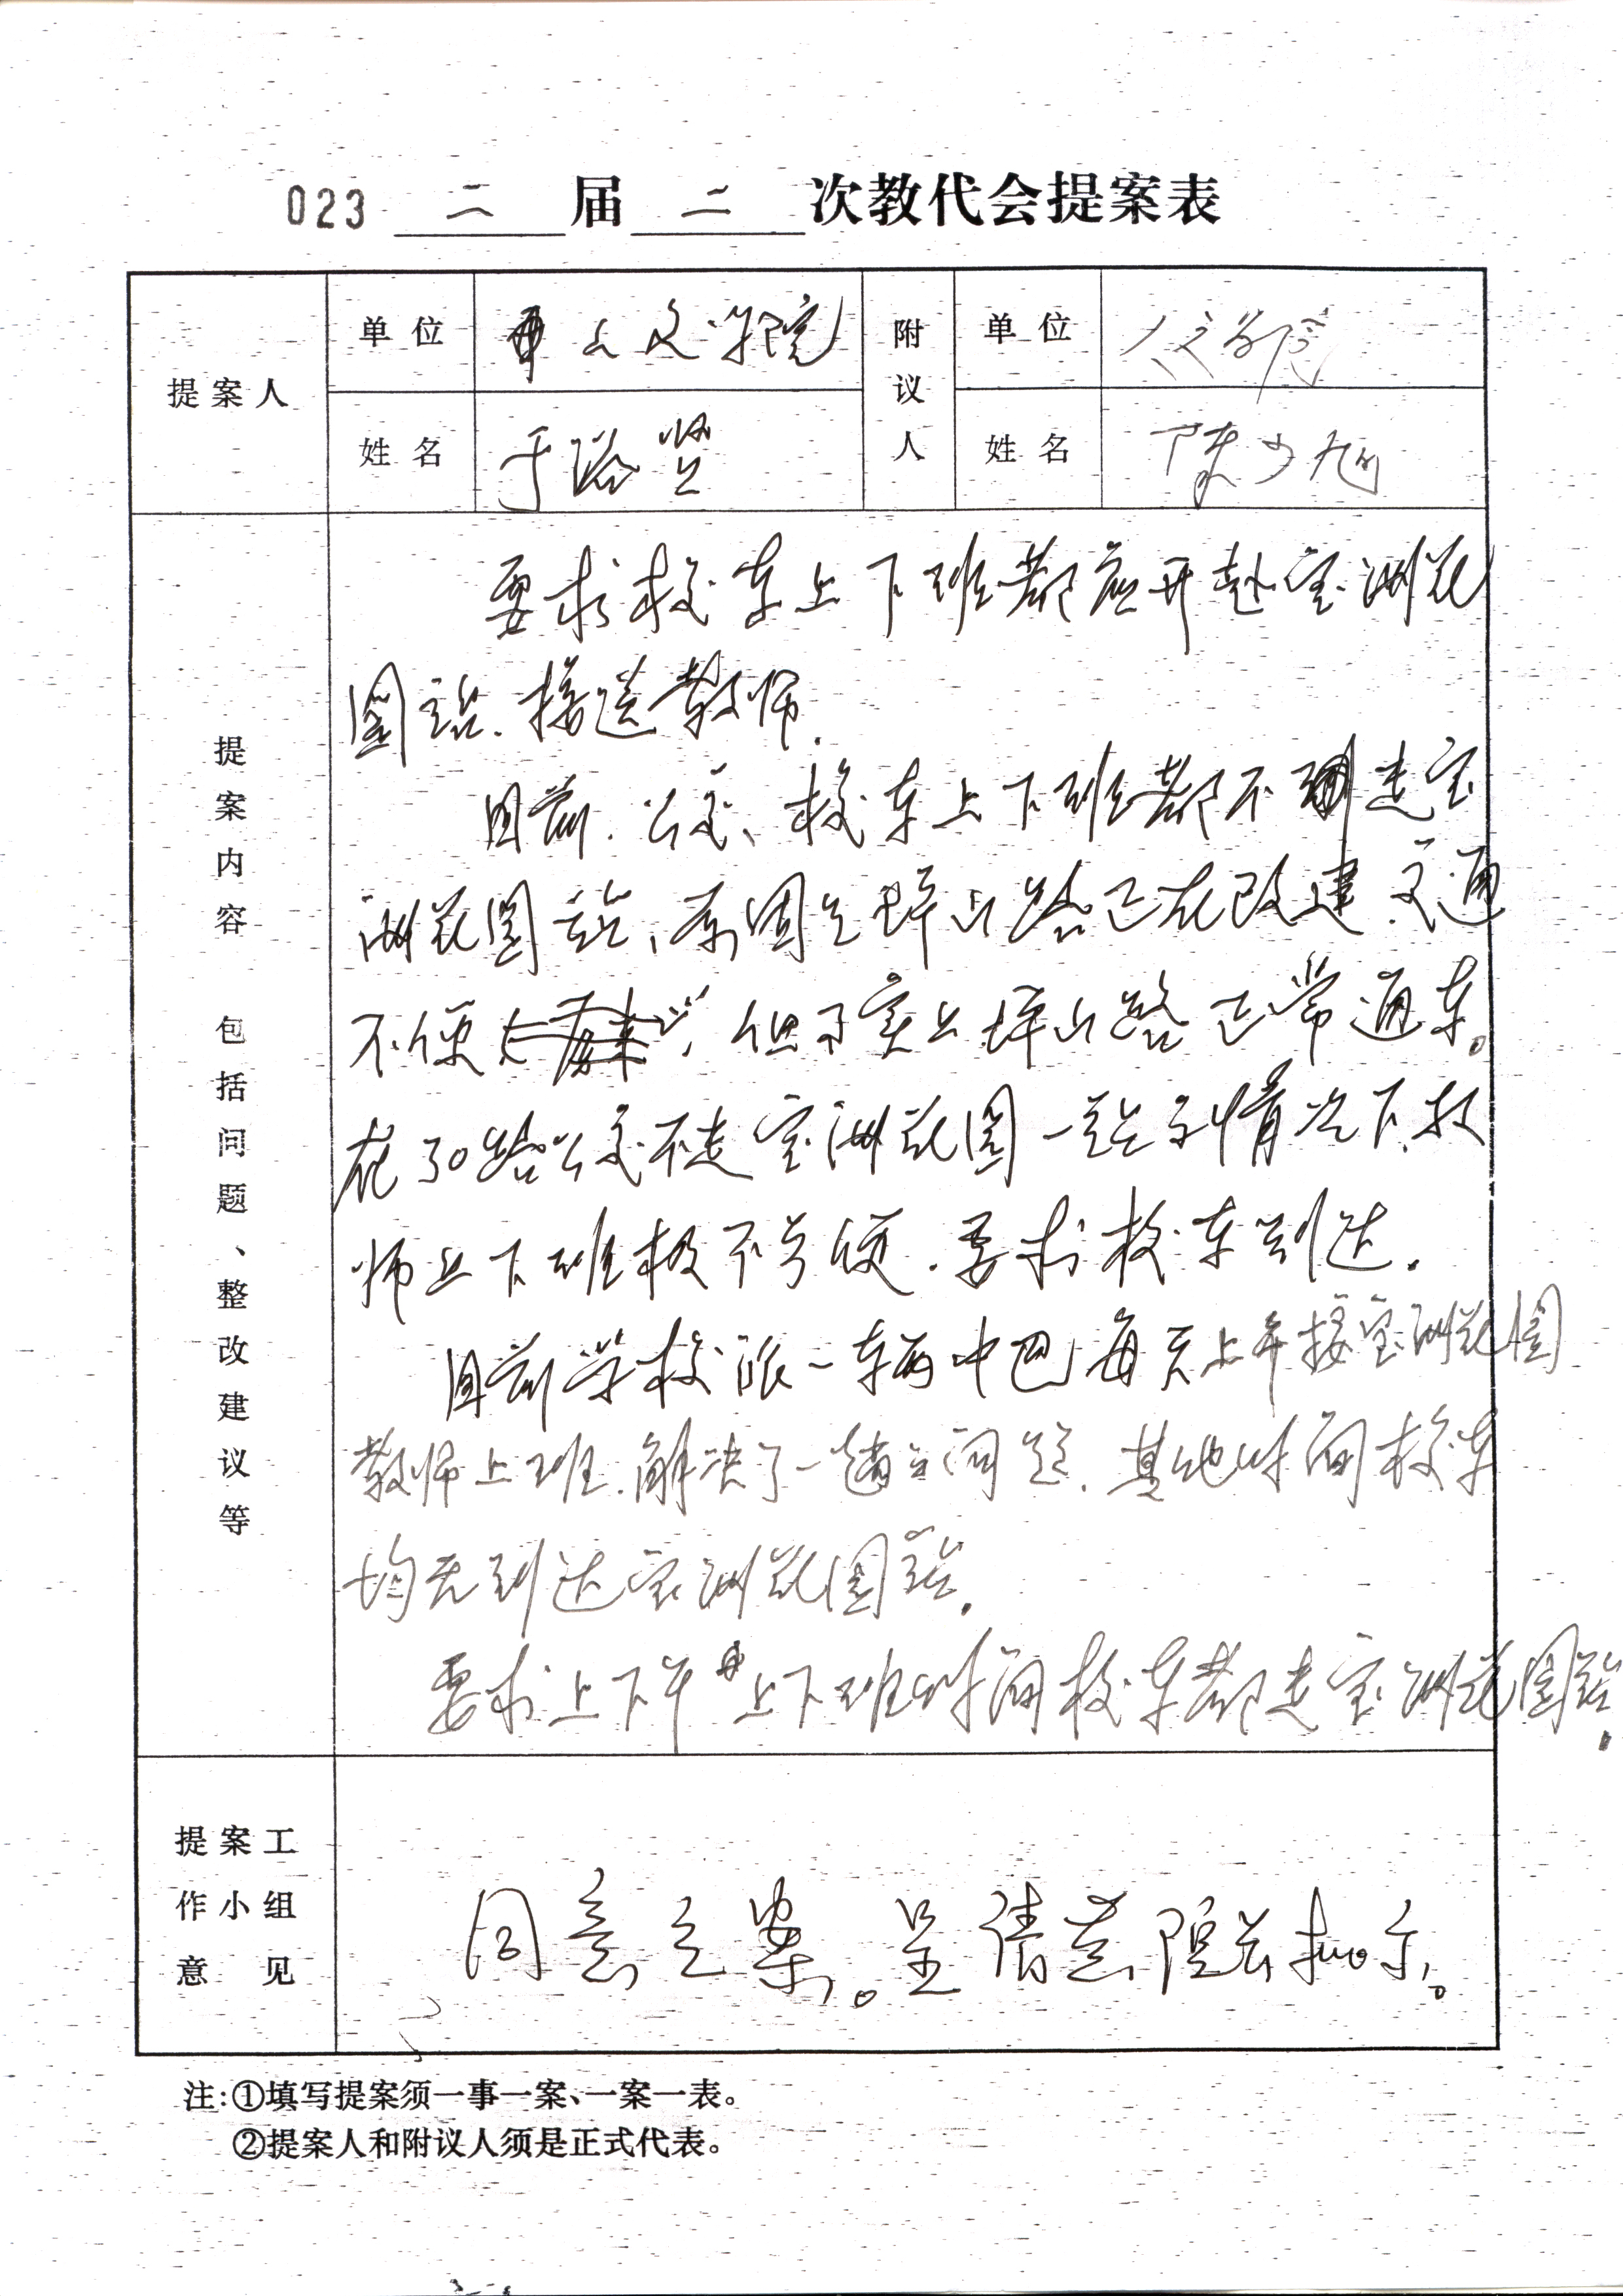 023 二 届 二 次教代会提案表
提案人
单位
人文学院
附议人
单位
人文学院
姓名
于浴贤
姓名
陈少旭
提案内容 包括问题、整改建议等
要求校车上下班都应开赴宝洲花
园站.接送教师.
目前.公交、校车上下班都不走宝
洲花园站、原因是坪山路正在改建.交通
不便,但事实上坪山路正常通车。
在30路公交不走宝洲花园一站的情况下.教
师上下班极不方便.要求校车到达.
目前学校派一辆中巴每天上午接宝洲花园
教师上班.解决了一趟之问题.其他时间校车
均无到达宝洲花园站.
要求上下午上下班时间校车都走宝洲花园站.
提案工作小组意见
同意立案。呈请黄院长批示。
注:①填写提案须一事一案、一案一表。
②提案人和附议人须是正式代表。